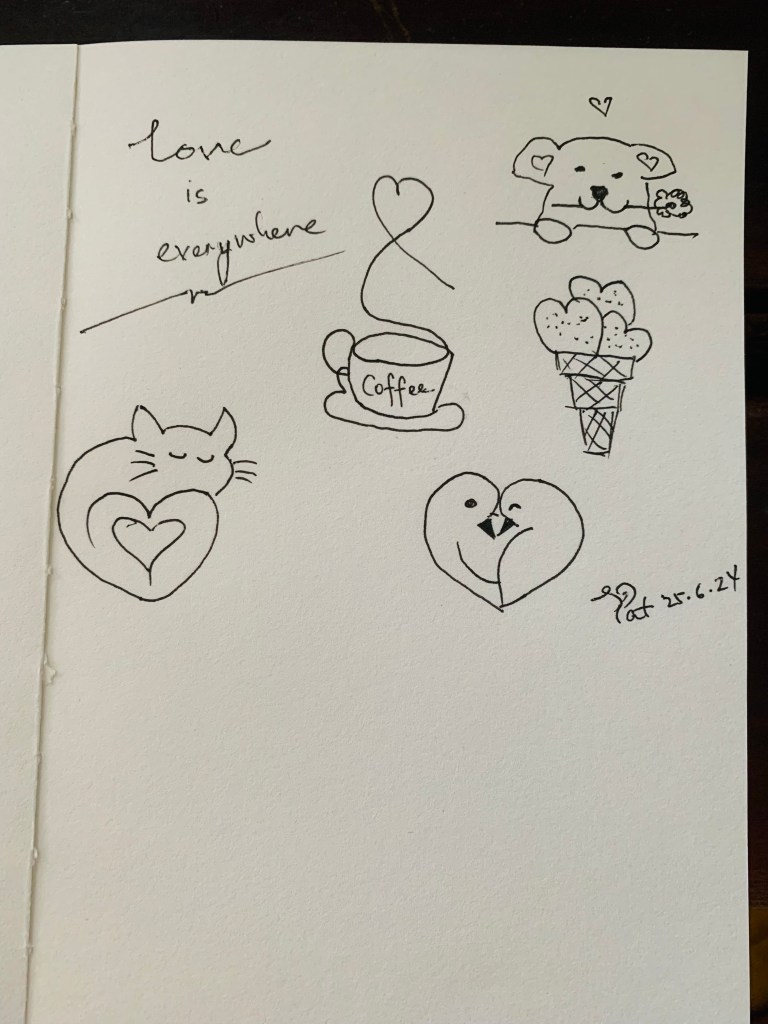 Love
is
everywhere
Coffee
Pat 25.6.24